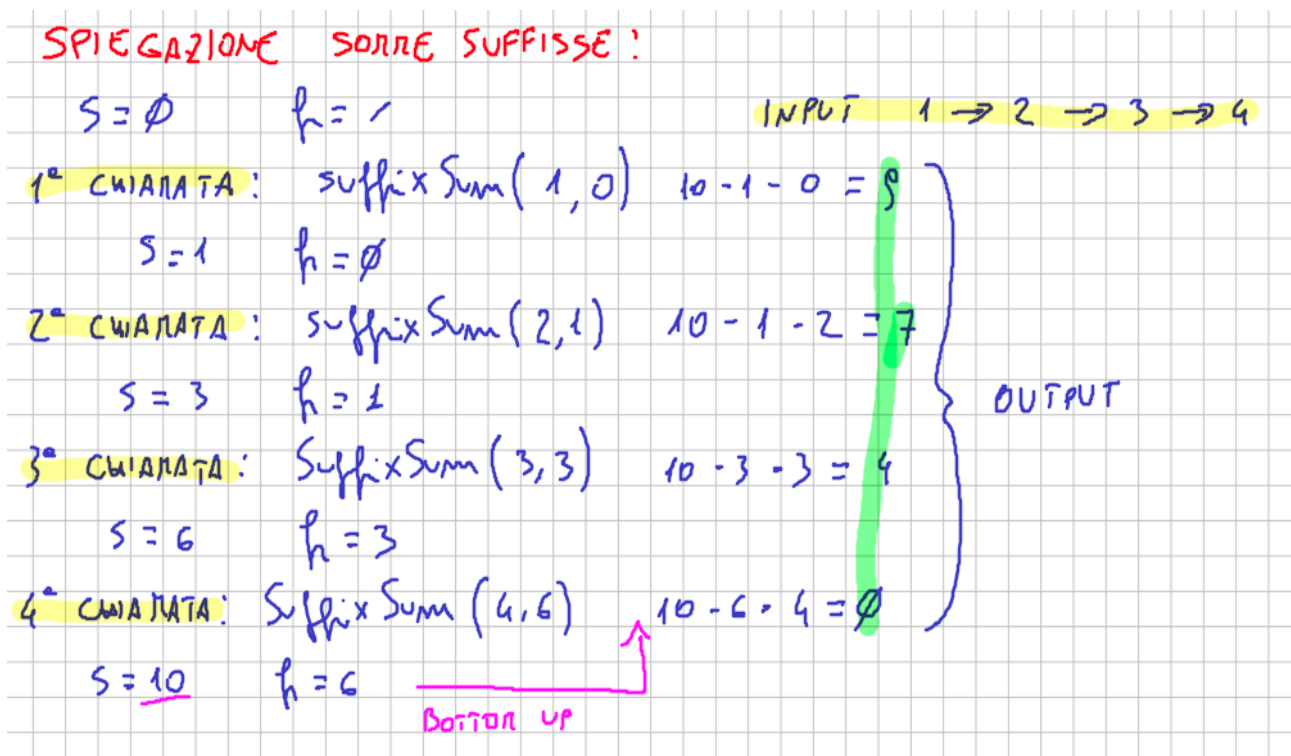 SPIEGAZIONE SOMME SUFFISSE:
S = Ø h = /
INPUT 1 → 2 → 3 → 4
1ª CHIAMATA: suffixSum(1,0) 10 - 1 - 0 = 9
S = 1 h = Ø
2ª CHIAMATA: suffixSum(2,1) 10 - 1 - 2 = 7
S = 3 h = 1
OUTPUT
3ª CHIAMATA: SuffixSum(3,3) 10 - 3 - 3 = 4
S = 6 h = 3
4ª CHIAMATA: SuffixSum(4,6) 10 - 6 - 4 = Ø
S = 10 h = 6
BOTTOM UP